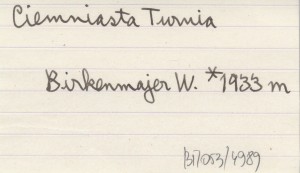 Ciemniasta Turnia
Birkenmajer W. *1933 m
B17/053/4989